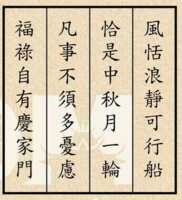 風恬浪靜可行船
恰是中秋月一輪
凡事不須多憂慮
福祿自有慶家門